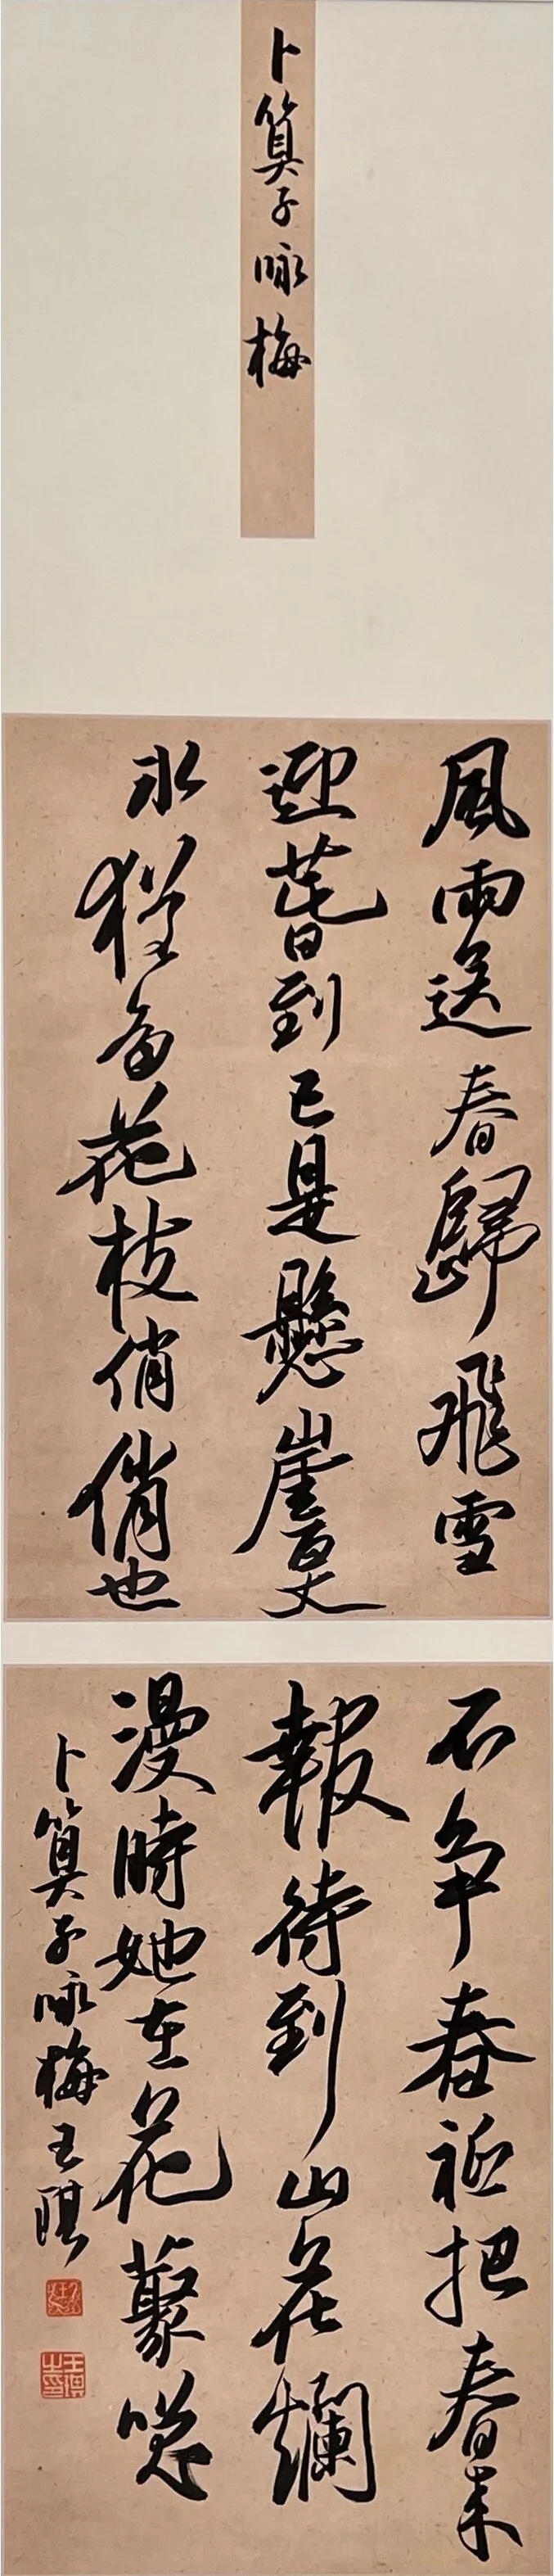 卜算子咏梅
風雨送春歸飛雪
迎萅到已是懸崖百丈
冰猶有花枝俏俏也
不争春祗把春来
報待到山花爛
漫時她在花藂咲
卜算子咏梅王